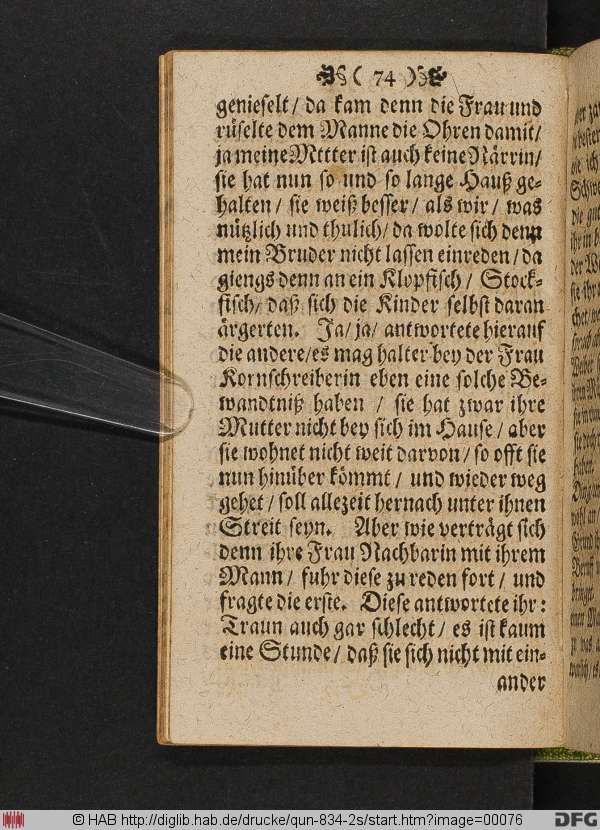 ( 74 )
genieselt / da kam denn die Frau und
rüselte dem Manne die Ohren damit/
ja meine Mttter ist auch keine Närrin/
sie hat nun so und so lange Hauß ge-
halten / sie weiß besser / als wir / was
nützlich und thulich / da wolte sich denn
mein Bruder nicht lassen einreden / da
giengs denn an ein Klopfisch / Stock-
fisch / daß sich die Kinder selbst daran
ärgerten. Ja / ja / antwortete hierauf
die andere / es mag halter bey der Frau
Kornschreiberin eben eine solche Be-
wandtniß haben / sie hat zwar ihre
Mutter nicht bey sich im Hause / aber
sie wohnet nicht weit darvon / so offt sie
nun hinüber kömmt / und wieder weg
gehet / soll allezeit hernach unter ihnen
Streit seyn. Aber wie verträgt sich
denn ihre Frau Nachbarin mit ihrem
Mann / fuhr diese zu reden fort / und
fragte die erste. Diese antwortete ihr :
Traun auch gar schlecht / es ist kaum
eine Stunde / daß sie sich nicht mit ein-
ander
© HAB http://diglib.hab.de/drucke/qun-834-2s/start.htm?image=00076
DFG